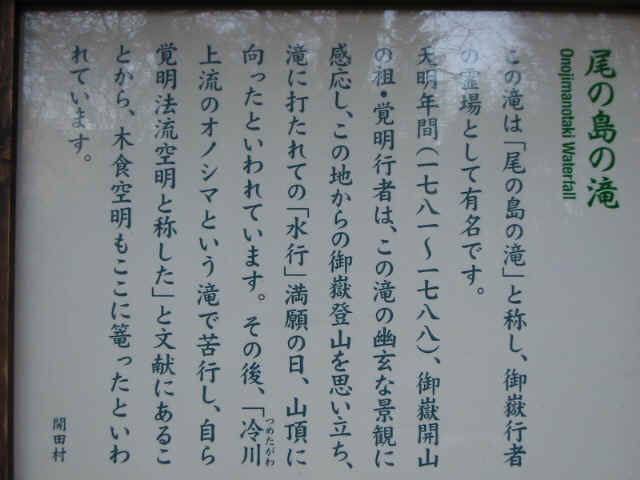 尾の島の滝
Onojimanotaki Waterfall
この滝は「尾の島の滝」と称し、御嶽行者
の霊場として有名です。
天明年間(一七八一〜一七八八)、御嶽開山
の祖・覚明行者は、この滝の幽玄な景観に
感応し、この地からの御嶽登山を思い立ち、
滝に打たれての「水行」満願の日、山頂に
向ったといわれています。その後、「冷川
つめたがわ
上流のオノシマという滝で苦行し、自ら
覚明法流空明と称した」と文献にあるこ
とから、木食空明もここに篭ったといわ
れています。
開田村